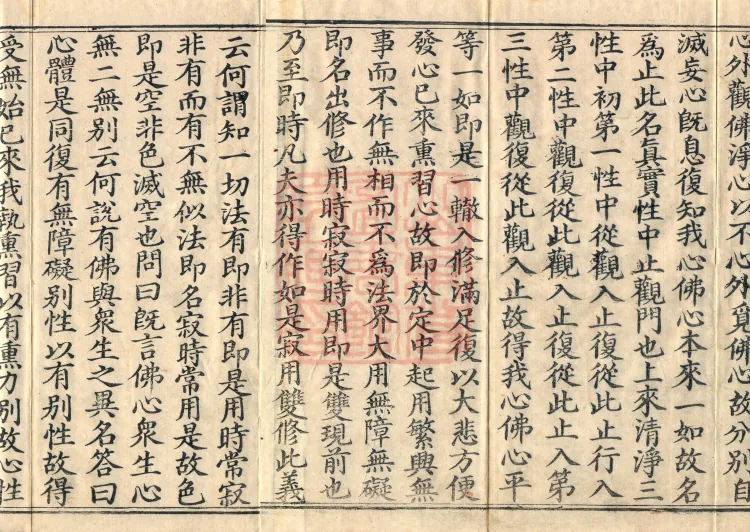 心外觀佛淨心以不心外覓佛心故分別自
滅妄心旣息復知我心佛心本來一如故名
爲止此名眞實性中止觀門也上來清淨三
性中初第一性中從觀入止復從此止行入
第二性中觀復從此觀入止復從此止入第
三性中觀復從此觀入止故得我心佛心平
等一如即是一轍入修滿足復以大悲方便
發心已來熏習心故即於定中起用繁興無
事而不作無相而不爲法界大用無障無礙
即名出修也用時寂寂時用即是雙現前也
乃至即時凡夫亦得作如是寂用雙修此義
云何謂知一切法有即非有即是用時常寂
非有而有不無似法即名寂時常用是故色
即是空非色滅空也問曰旣言佛心衆生心
無二無別云何說有佛與衆生之異名答曰
心體是同復有無障礙別性以有別性故得
受無始已來我執熏習以有熏力別故心性